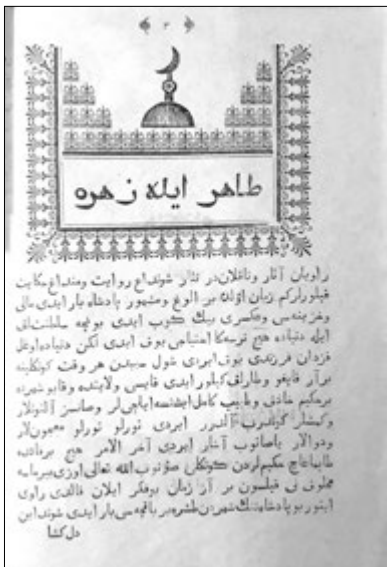 ٣
طاهر ايله زهره
راويان آثار وناقلان در نثار شونداغ روايت ومنداغ حكايت
قيلورلر كم زمان اولده بر الوغ ومشهور پادشاه بار ايدى مالى
وخزينه سى وعسكرى بيك كوب ايدى بو نچه سلطنت لق
ايله دنياده هيچ نرسه كا احتياجى يوق ايدى لكن دنياده اوغل
قزدان فرزندى يوق ايردى شول سببدن هر وقت كونكلينه
بر آز قايغو وطارلق كيلور ايدى قايسى ولايتده وقايو شهرده
بر حكيم حاذق وطبيب كامل ايشتسه ايلچى لر وصانسز آلتونلار
وكمشلر كوندروب آلدرر ايردى تورلو تورلو معجون لار
ودوالار ياصاتوب آخر الامر هيچ بر
حكيم لردن كونكلن صاوتوب الله تعالى اوزى بيرمسه
مخلوق نى قيلسون بر آز زمان بو فكر ايلان قالدى راوى
ايتور بو پادشاه ننك شهرندن طشره بر باغچه سى بار ايدى شوندا
دلكشا